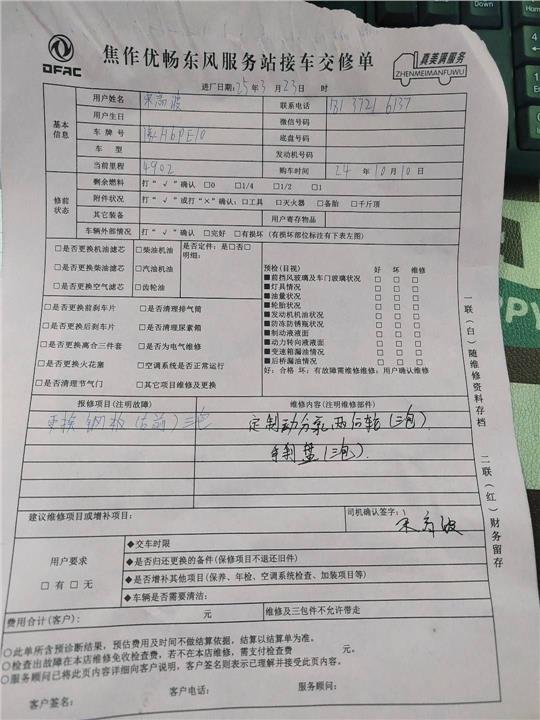 DFAC
焦作优畅东风服务站接车交修单
真美满服务
ZHENMEIMANFUWU
进厂日期:25年3月23日 时
基本信息
用户姓名 宋高波 联系电话 181 3721 6137
用户生日 微信号码
车牌号 豫H6PE10 底盘号码
车型 发动机号码
当前里程 4902 购车时间 24年10月10日
修前状态
剩余燃料 打“√”确认 □0 □1/4 □1/2 □1
附件状况 打“√”或打“×”确认:□工具 □灭火器 □备胎 □千斤顶
其它装备 用户寄存物品
车辆外部情况 打“√”确认 □完好 □有损坏(有损坏部位标注有下表左图)
□是否更换机油滤芯 □柴油机油 是否定件:是□否□
明细:
□是否更换柴油滤芯 □汽油机油
□是否更换空气滤芯 □齿轮油
预检(目视) 好 坏 维修
■前挡风玻璃及车门玻璃状况 □ □ □
■灯具情况 □ □ □
■油量状况 □ □ □
■轮胎状况 □ □ □
■发动机机油状况 □ □ □
■防冻防锈瓶状况 □ □ □
■制动液液面 □ □ □
■动力转向液液面 □ □ □
■变速箱漏油情况 □ □ □
■后桥漏油情况 □ □ □
好:合格 坏:有故障需维修维修:用户确认维修
□是否更换前刹车片 □是否清理排气筒
□是否更换后刹车片 □是否清理尿素箱
□是否更换离合三件套 □是否为电气维修
□是否更换火花塞 □空调系统是否正常运行
□是否清理节气门 □其它项目维修及更换
报修项目(注明故障) 维修内容(注明维修部件)
更换钢板(右前)三包 定制动分泵两后轮(三包).
手刹盘(三包).
建议维修项目或增补项目: 司机确认签字:
宋高波
用户要求
□有□无
◆交车时限
◆是否归还更换的备件(保修项目不退还旧件)
◆是否增补其他项目(保养、年检、空调系统检查、加装项目等)
◆车辆是否需要清洁:
费用合计(客户): 元 维修及三包件不允许带走
○此单所含预诊断结果,预估费用及时间不做结算依据,结算以结算单为准。
○检查出故障在本店维修免收检查费,若不在本店维修,需支付检查费 元。
○服务顾问已将此页内容详细向客户说明,客户签名则表示已理解并接受此页内容。
客户签名: 客户电话: 服务顾问:
一联(白)随维修资料存档
二联(红)财务留存